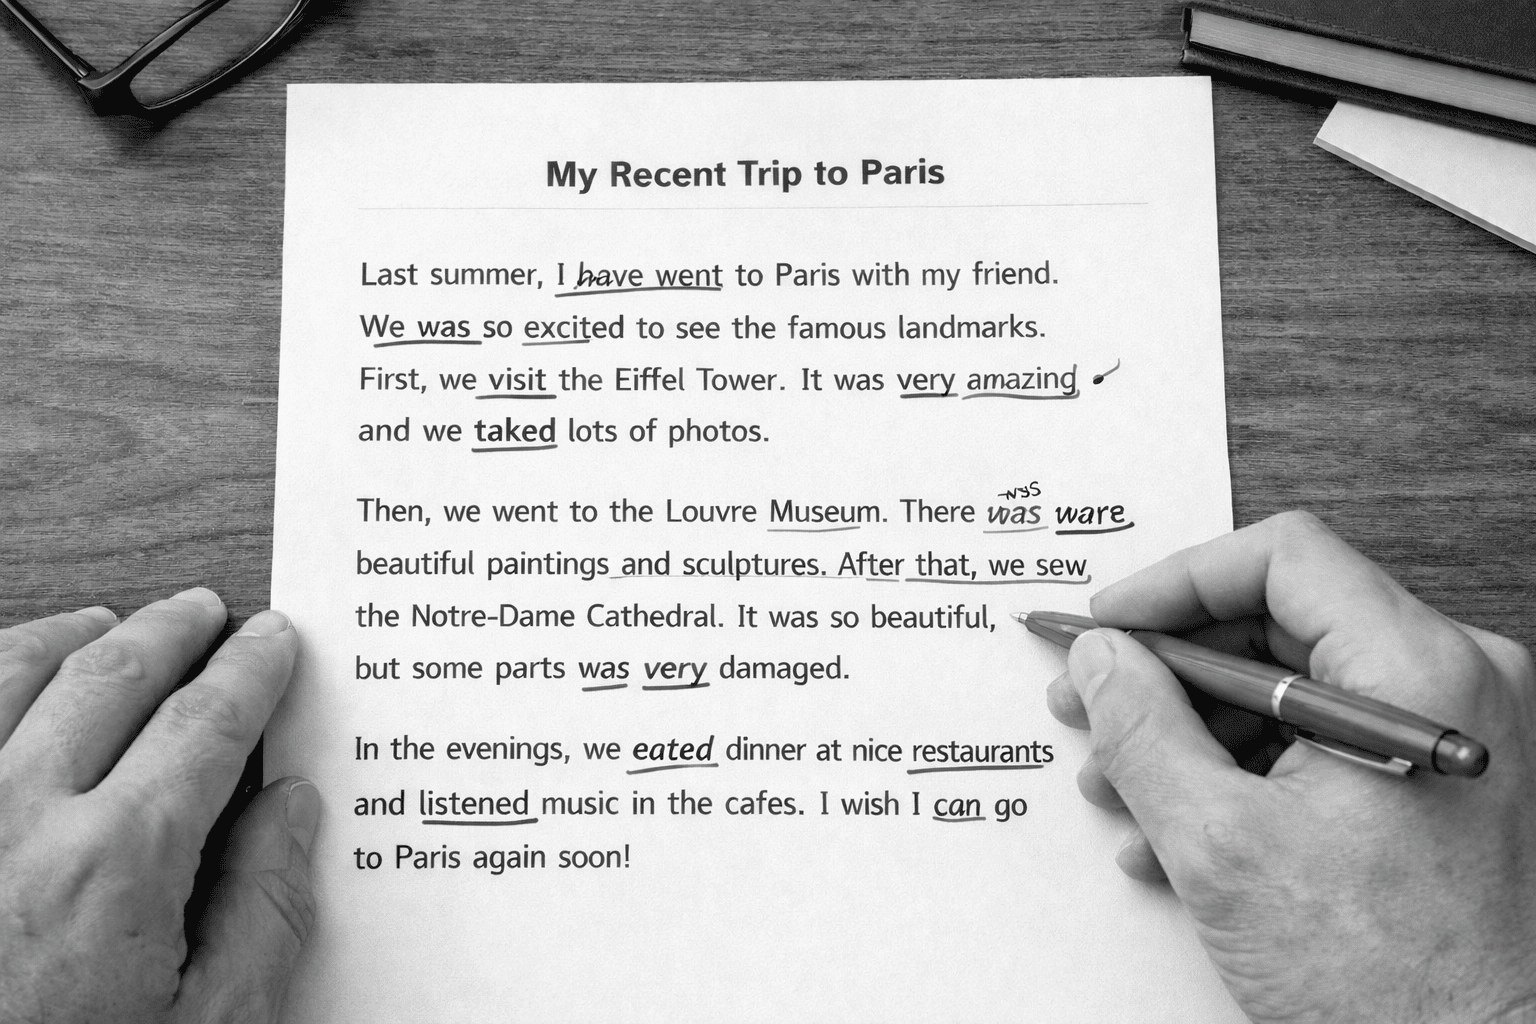 My Recent Trip to Paris
Last summer, I have went to Paris with my friend.
We was so excited to see the famous landmarks.
First, we visit the Eiffel Tower. It was very amazing
and we taked lots of photos.
Then, we went to the Louvre Museum. There was ware
beautiful paintings and sculptures. After that, we sew
the Notre-Dame Cathedral. It was so beautiful,
but some parts was very damaged.
In the evenings, we eated dinner at nice restaurants
and listened music in the cafes. I wish I can go
to Paris again soon!